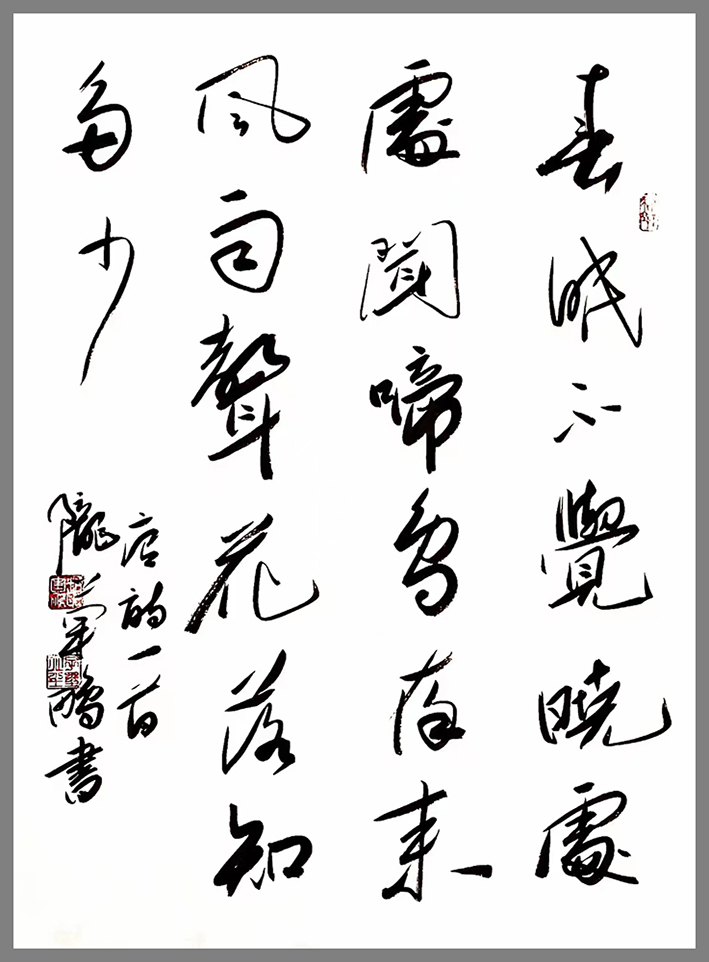 春眠不覺曉處
處聞啼鳥夜来
風雨聲花落知
多少
唐詩一首
隴鵬書